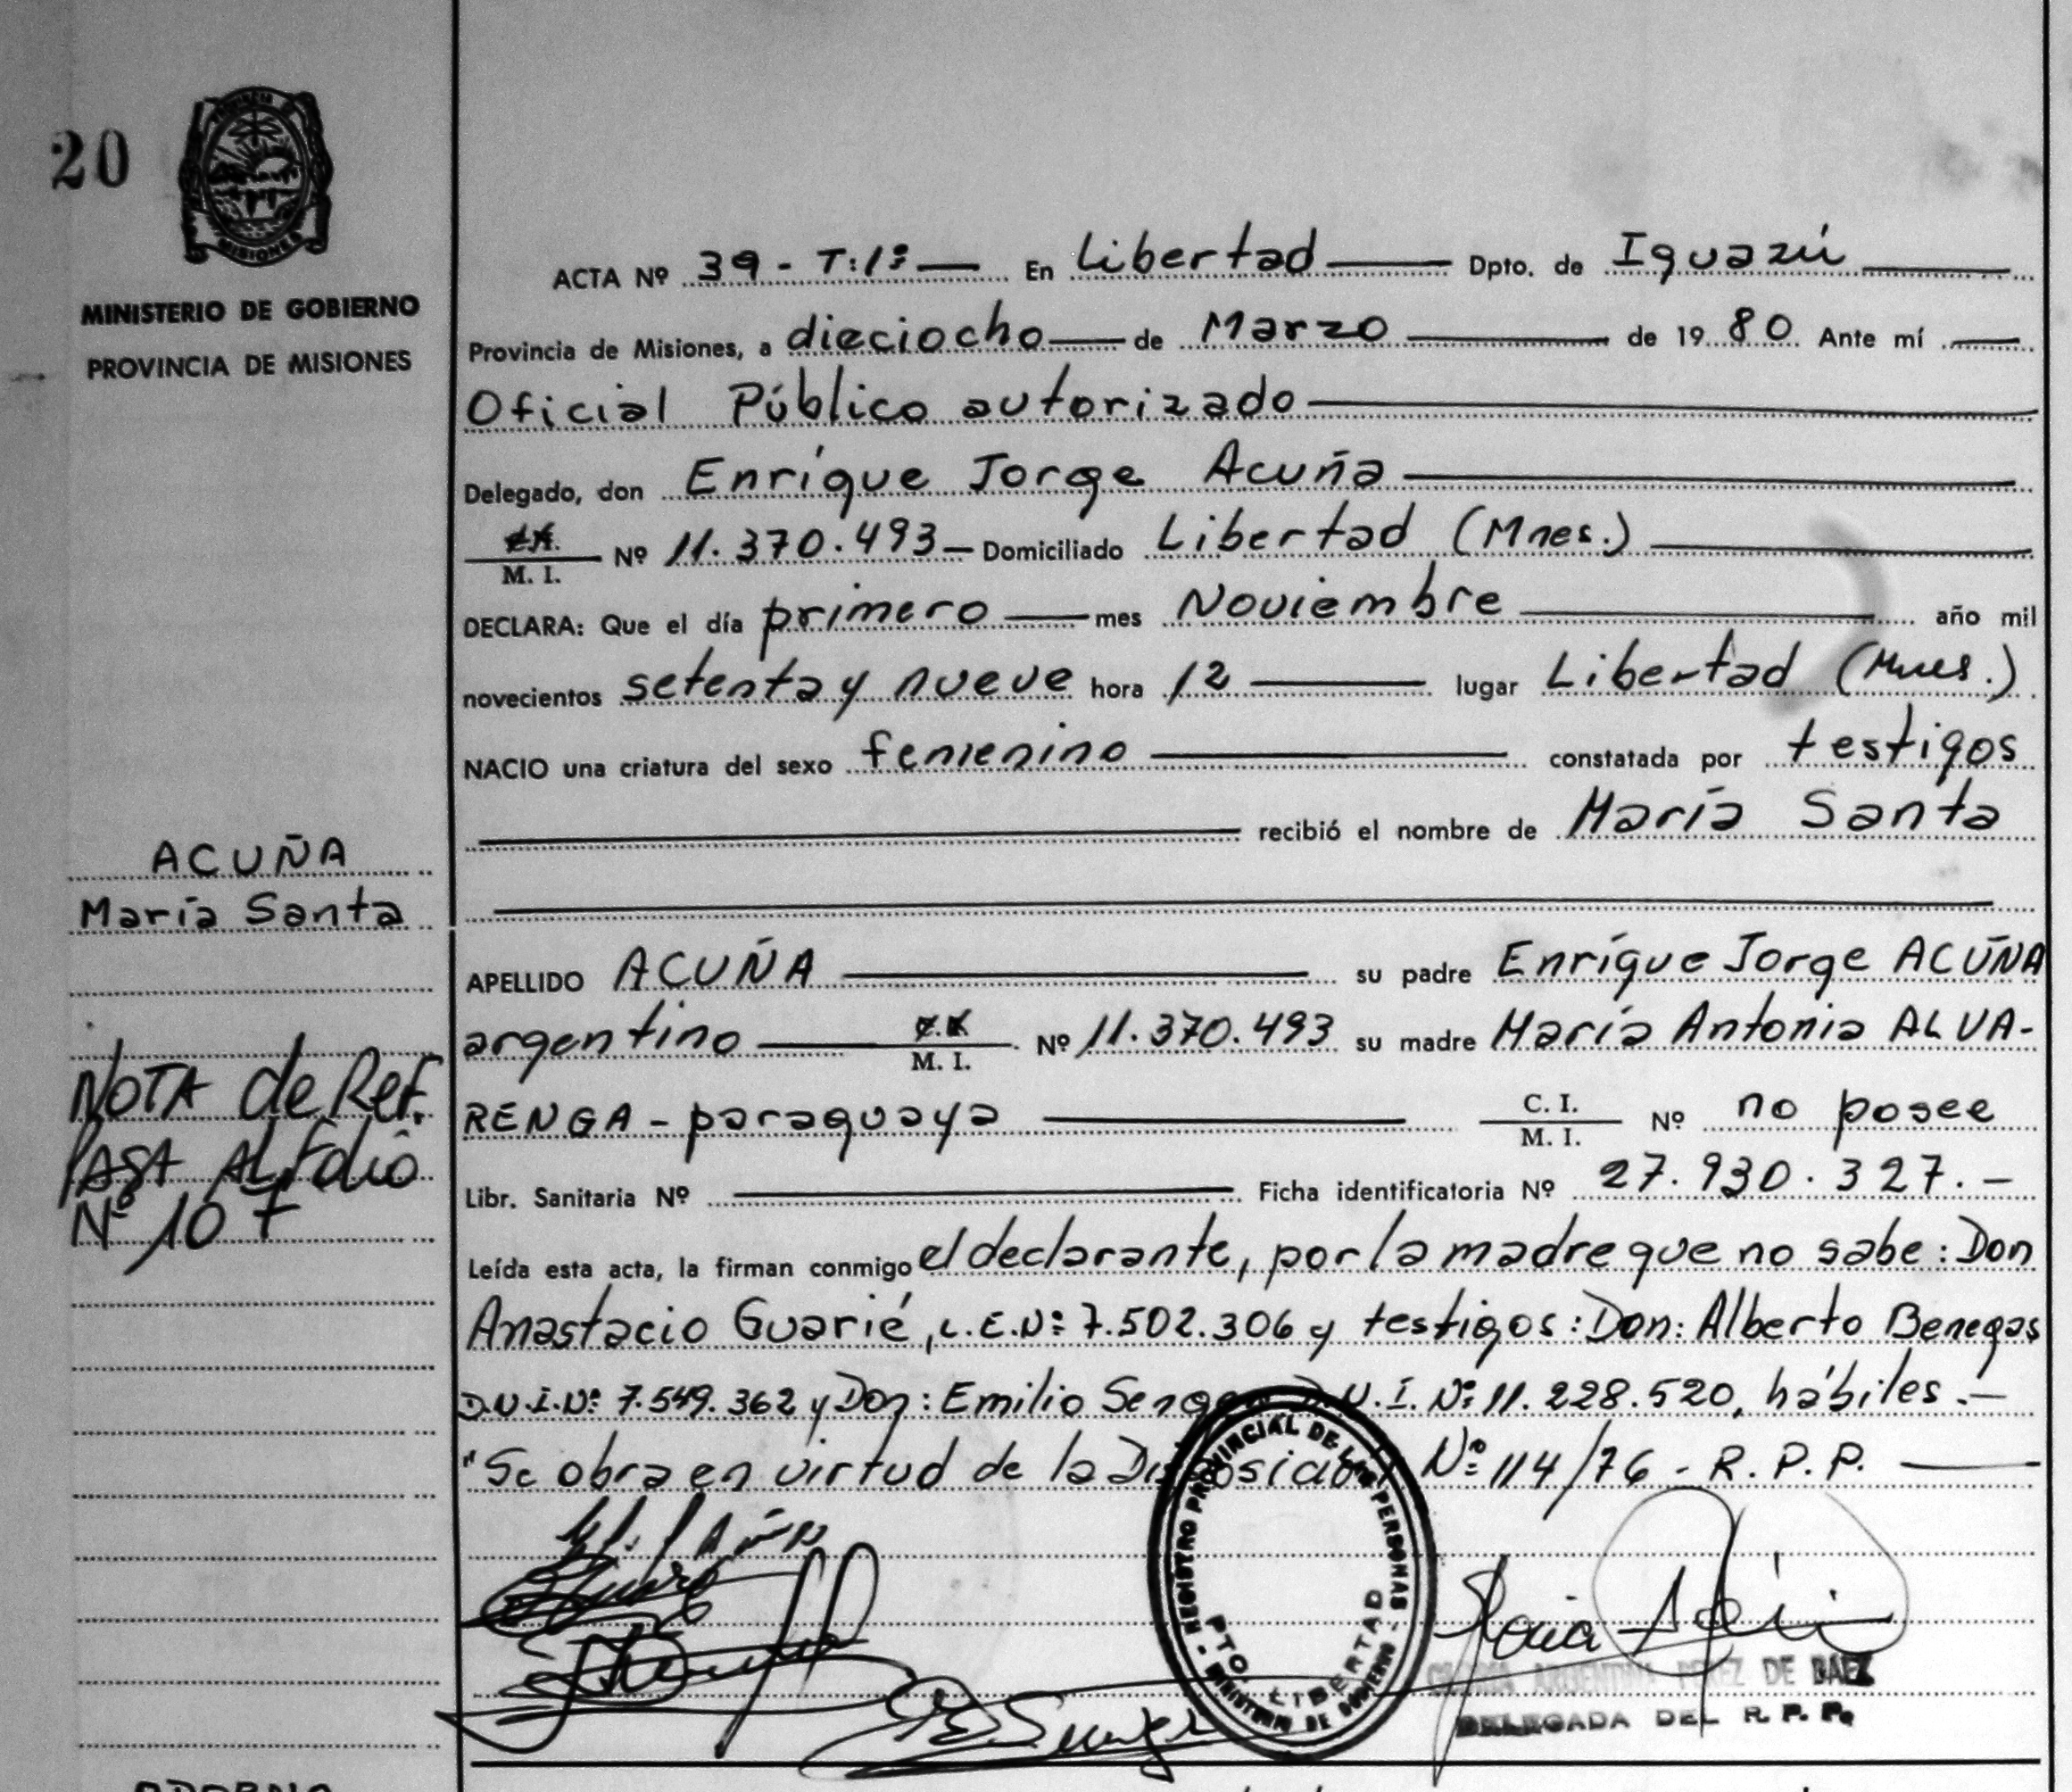 20
PROVINCIA DE
MISIONES
MINISTERIO DE GOBIERNO
PROVINCIA DE MISIONES
ACUÑA
María Santa
NOTA de Ref.
PASA AL Folio
Nº 107
ACTA Nº 39 - T:1º — En Libertad — Dpto. de Iguazú —
Provincia de Misiones, a dieciocho — de Marzo — de 1980 Ante mí —
Oficial Público autorizado —
Delegado, don Enríque Jorge Acuña —
C.I. / M. I. Nº 11.370.493 — Domiciliado Libertad (Mnes.) —
DECLARA: Que el día primero — mes Noviembre — año mil
novecientos setenta y nueve hora 12 — lugar Libertad (Mnes.)
NACIO una criatura del sexo femenino — constatada por testigos
— recibió el nombre de María Santa
APELLIDO ACUÑA — su padre Enríque Jorge ACUÑA
argentino — C.I. / M. I. Nº 11.370.493 su madre María Antonia ALVA-
RENGA - paraguaya — C. I. / M. I. Nº no posee
Libr. Sanitaria Nº — Ficha identificatoria Nº 27.930.327.-
Leída esta acta, la firman conmigo el declarante, por la madre que no sabe: Don
Anastacio Guarié, L.E.Nº: 7.502.306 y testigos: Don: Alberto Benegas
D.N.I.Nº: 7.549.362 y Don: Emilio D.N.I. Nº: 11.228.520, hábiles.-
"Se obra en virtud de la Disposición Nº: 114/76 - R. P. P. —
REGISTRO PROVINCIAL DE LAS PERSONAS - MINISTERIO DE GOBIERNO -
PTO LIBERTAD
ARGENTINA PEREZ DE BAEZ
DELEGADA DEL R. P. P.